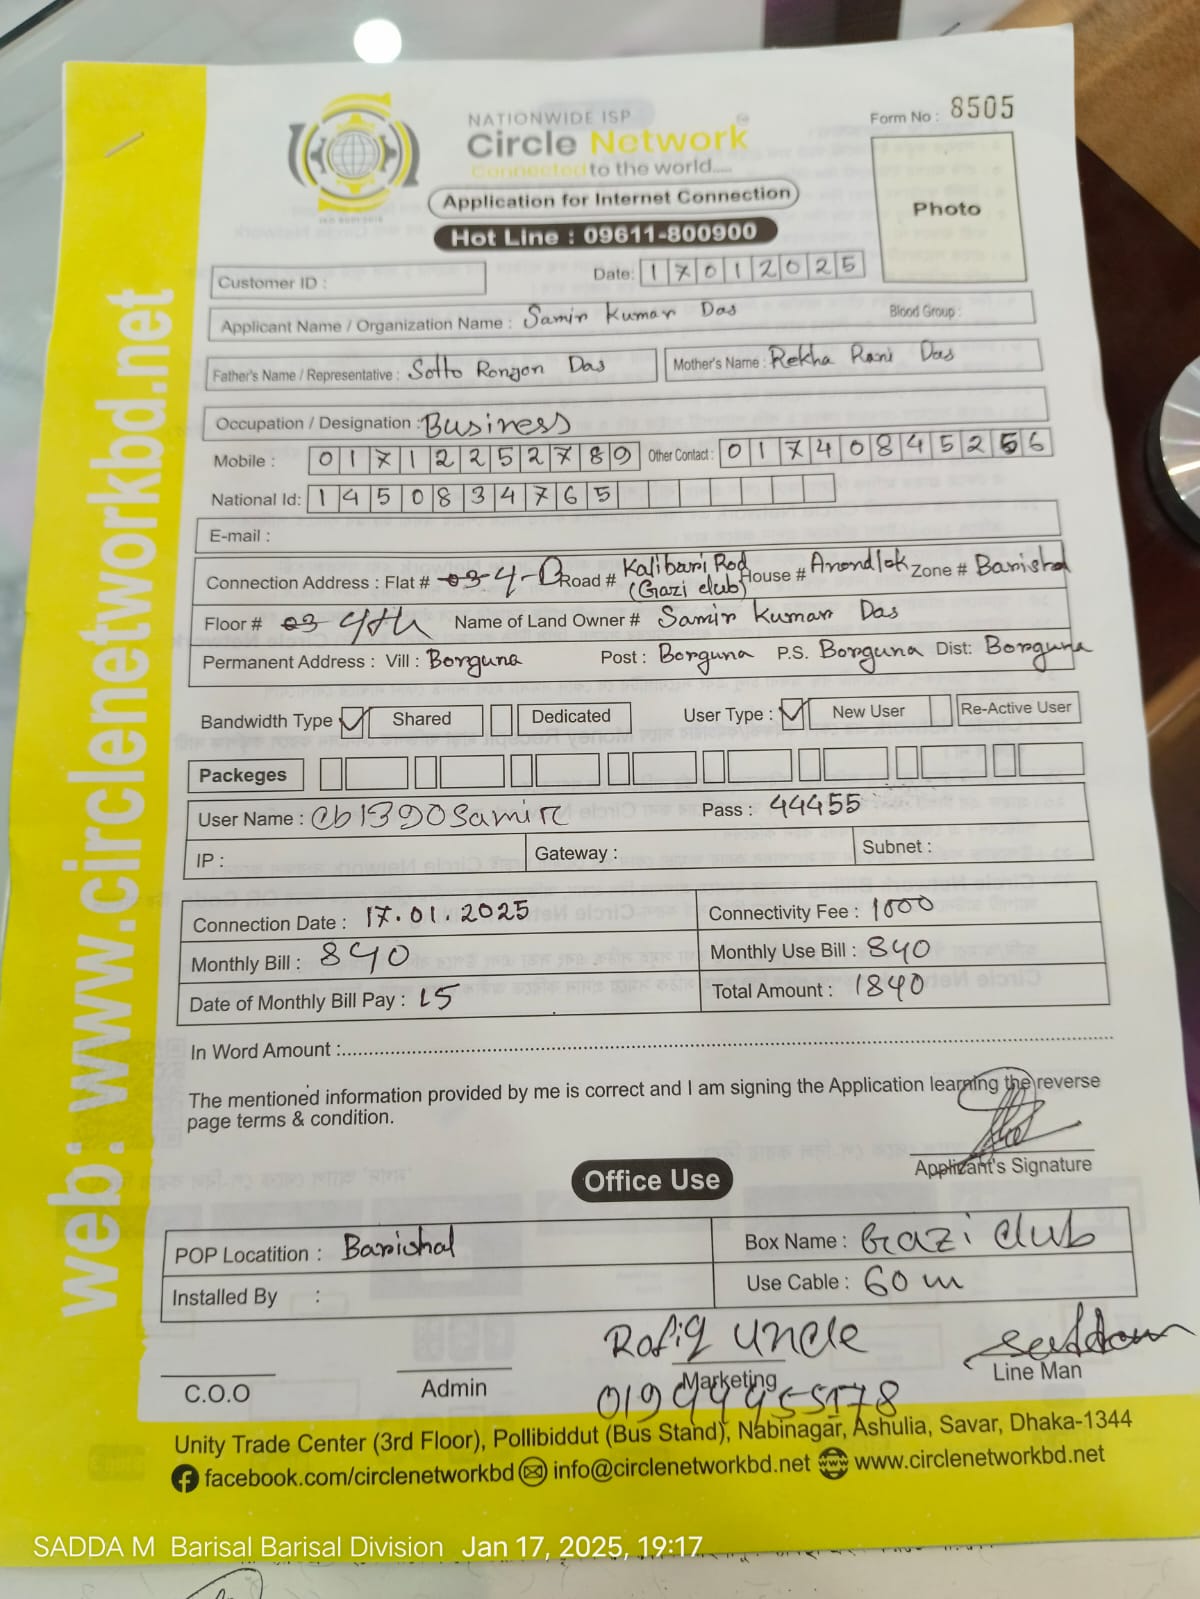 NATIONWIDE ISP
Circle Network
Connected to the world.....
Application for Internet Connection
Hot Line : 09611-800900
Form No : 8505
Photo
Customer ID :
Date: 17012025
Applicant Name / Organization Name : Samir Kumar Das Blood Group :
Father's Name / Representative : Sotto Ronjon Das Mother's Name : Rekha Rani Das
Occupation / Designation : Business
Mobile : 01712252789 Other Contact : 01740845256
National Id: 1450834765
E-mail :
Connection Address : Flat # 03 4-D Road # Kalibari Rod (Gazi club) House # Anondlok Zone # Barishal
Floor # 03 4th Name of Land Owner # Samir Kumar Das
Permanent Address : Vill : Borguna Post : Borguna P.S. Borguna Dist: Borguna
Bandwidth Type Shared Dedicated User Type : New User Re-Active User
Packeges
User Name : cb1390samir Pass : 44455
IP : Gateway : Subnet :
Connection Date : 17.01.2025 Connectivity Fee : 1000
Monthly Bill : 840 Monthly Use Bill : 840
Date of Monthly Bill Pay : 15 Total Amount : 1840
In Word Amount :
The mentioned information provided by me is correct and I am signing the Application learning the reverse
page terms & condition.
Applicant's Signature
Office Use
POP Locatition : Barishal Box Name : Gazi club
Installed By : Use Cable : 60 m
Rofiq uncle
C.O.O Admin Marketing Line Man
Unity Trade Center (3rd Floor), Pollibiddut (Bus Stand), Nabinagar, Ashulia, Savar, Dhaka-1344
facebook.com/circlenetworkbd info@circlenetworkbd.net www.circlenetworkbd.net
web: www.circlenetworkbd.net
SADDA M Barisal Barisal Division Jan 17, 2025, 19:17